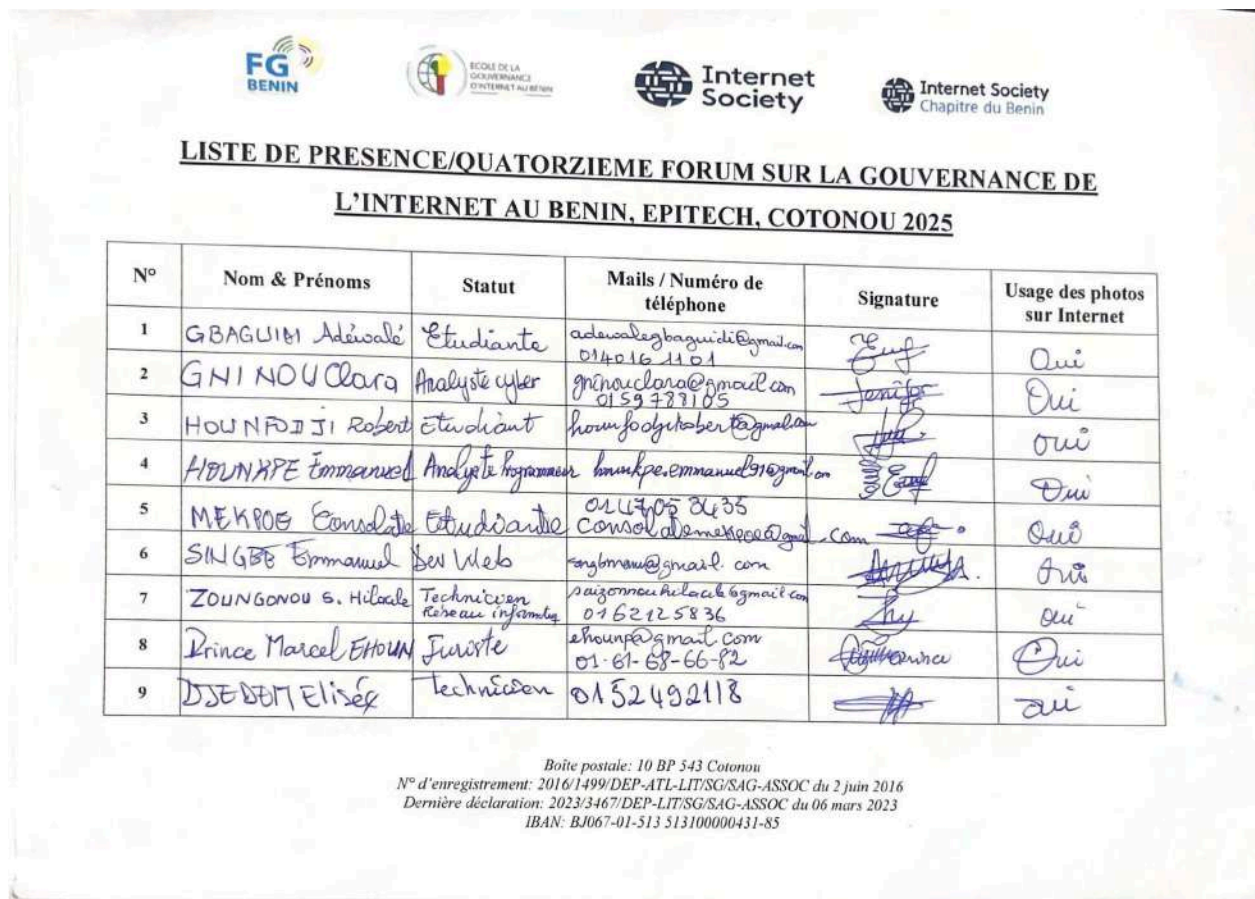 FG
BENIN
ECOLE DE LA
GOUVERNANCE
D'INTERNET AU BENIN
Internet
Society
Internet Society
Chapitre du Benin
LISTE DE PRESENCE/QUATORZIEME FORUM SUR LA GOUVERNANCE DE
L'INTERNET AU BENIN, EPITECH, COTONOU 2025
N° Nom & Prénoms Statut Mails / Numéro de téléphone Signature Usage des photos sur Internet
1 GBAGUIDI Adéwalé Etudiante adewalegbaguidi@gmail.com Oui
0140161101
2 GNINOU Clara Analyste cyber gninouclara@gmail.com Jenifer Oui
0159788105
3 HOUNFODJI Robert Etudiant hounfodjirobert@gmail.com oui
4 HOUNKPE Emmanuel Analyste Programmeur hounkpe.emmanuel91@gmail.com Oui
5 MEKPOE Consolate Etudiante 0147053435 Oui
consolatemekpoe@gmail.com
6 SINGBE Emmanuel Dev Web Oui
7 ZOUNGONOU S. Hilacle Technicien oui
Réseau 0162125836
8 Prince Marcel EHOUN Juriste ehounp@gmail.com Oui
01-61-68-66-82
9 DJEDEM Elisée Technicien 0152492118 oui
Boîte postale: 10 BP 543 Cotonou
N° d'enregistrement: 2016/1499/DEP-ATL-LIT/SG/SAG-ASSOC du 2 juin 2016
Dernière déclaration: 2023/3467/DEP-LIT/SG/SAG-ASSOC du 06 mars 2023
IBAN: BJ067-01-513 513100000431-85